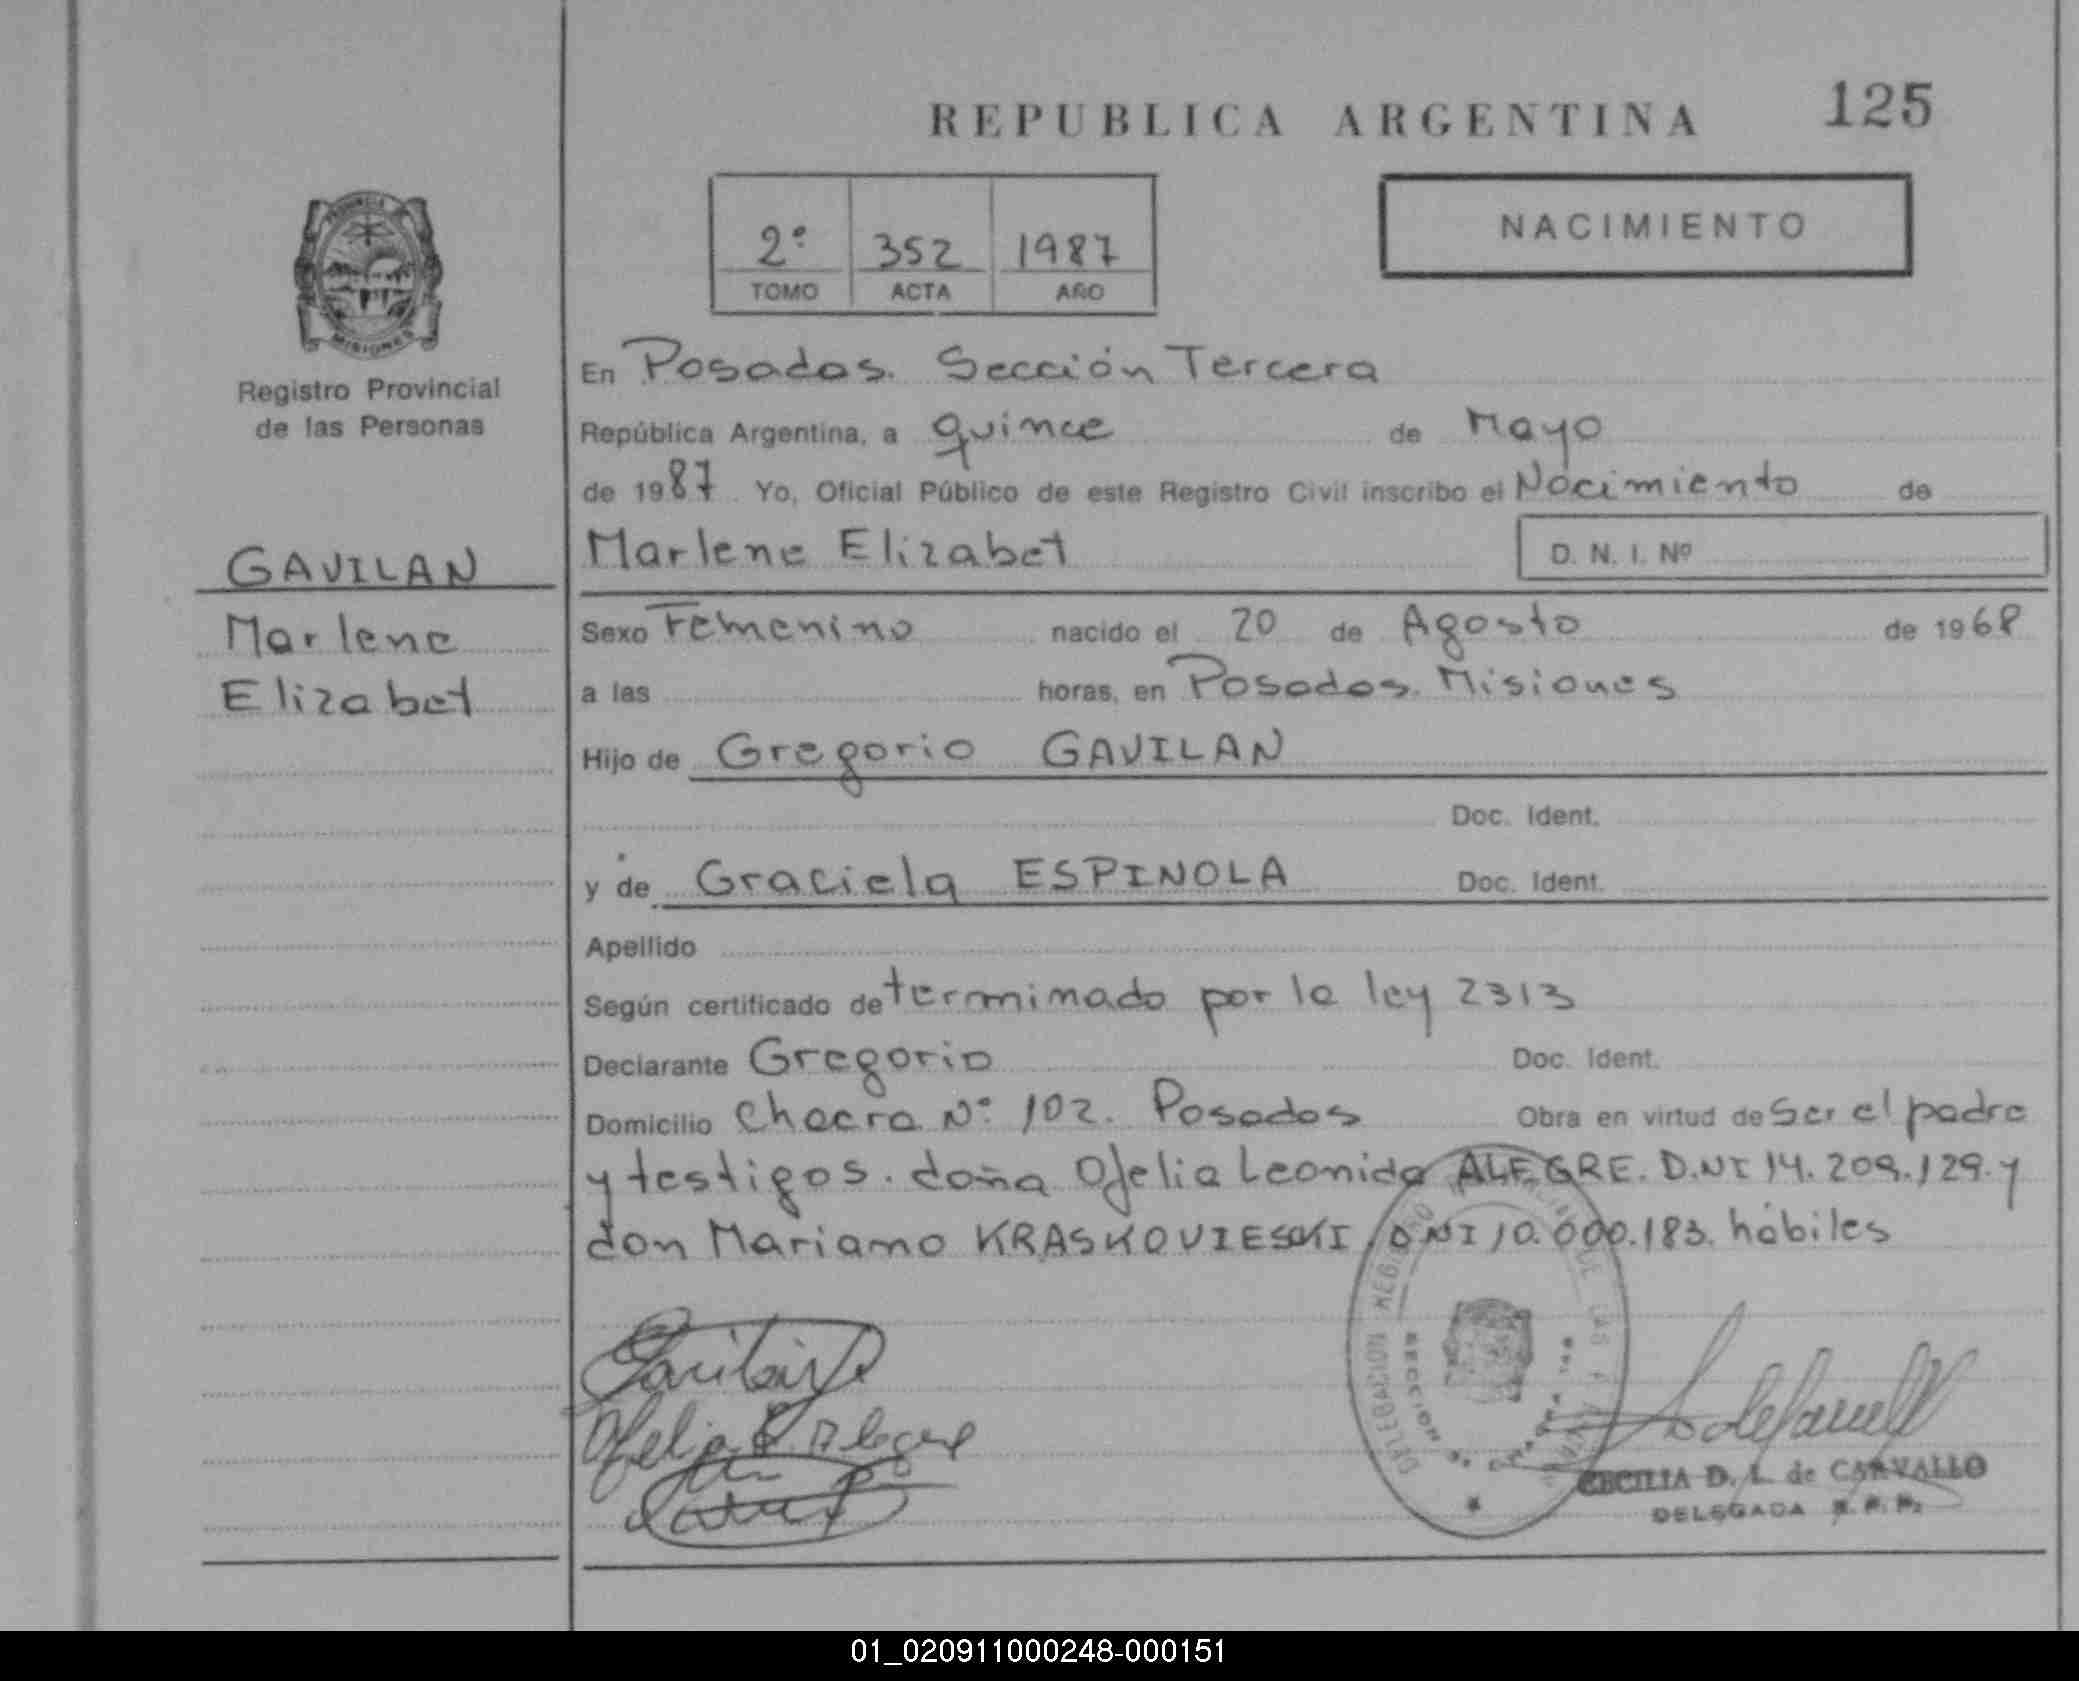 REPUBLICA ARGENTINA 125
2º 352 1987
TOMO ACTA AÑO
NACIMIENTO
PROVINCIA DE
MISIONES
Registro Provincial
de las Personas
GAVILAN
Marlene
Elizabet
En Posadas. Sección Tercera
República Argentina, a quince de Mayo
de 1987 Yo, Oficial Público de este Registro Civil inscribo el Nacimiento de
Marlene Elizabet D. N. I. Nº
Sexo Femenino nacido el 20 de Agosto de 1968
a las horas, en Posadas. Misiones
Hijo de Gregorio GAVILAN
Doc. Ident.
y de Graciela ESPINOLA Doc. Ident.
Apellido
Según certificado determinado por la ley 2313
Declarante Gregorio Doc. Ident.
Domicilio Chacra Nº 102. Posadas Obra en virtud de Ser el padre
y testigos. doña Ofelia Leonida ALEGRE. D.NI 14.209.129. y
don Mariano KRASKOVIESKI DNI 10.000.183. hábiles
Ofelia L. Alegre
DELEGACION REGISTRO DE LAS
SECCION
CECILIA D. L. de CARVALLO
DELEGADA R. P. P.
01_020911000248-000151